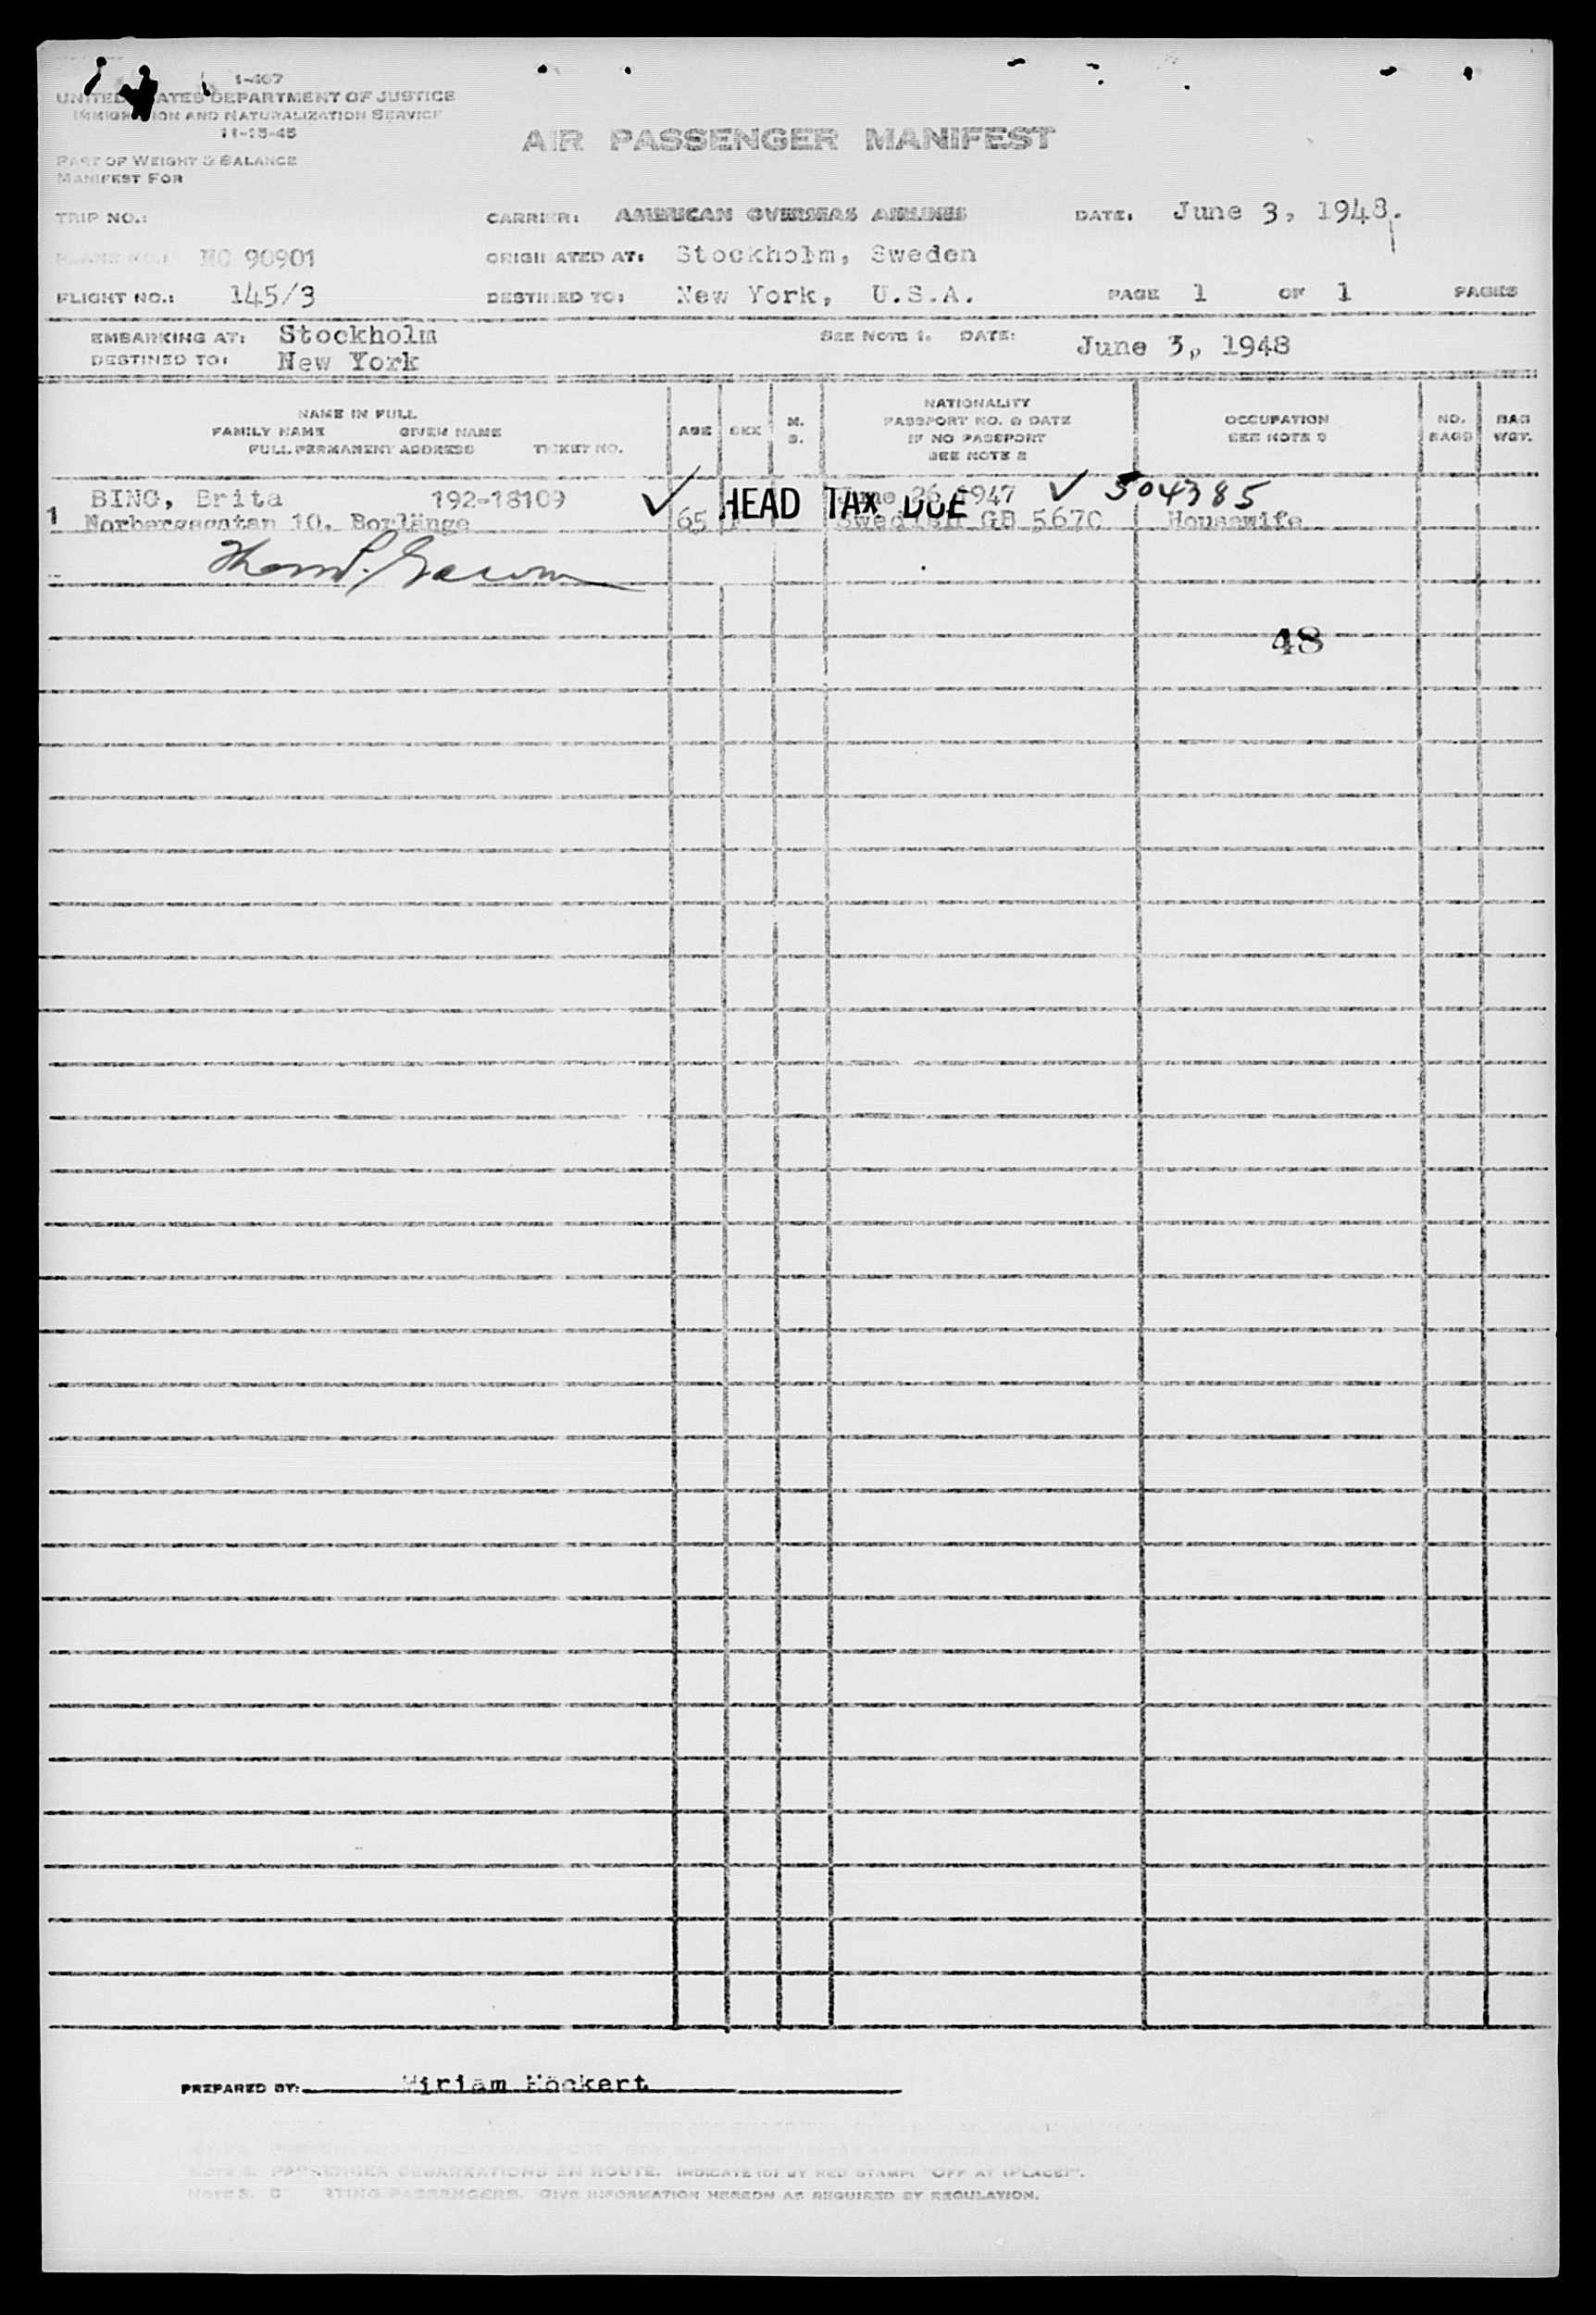 1-407
UNITED STATES DEPARTMENT OF JUSTICE
IMMIGRATION AND NATURALIZATION SERVICE
11-15-45
AIR PASSENGER MANIFEST
PART OF WEIGHT & BALANCE
MANIFEST FOR
TRIP NO.: CARRIER: AMERICAN OVERSEAS AIRLINES DATE: June 3, 1948.
PLANE NO.: NC 90901 ORIGINATED AT: Stockholm, Sweden
FLIGHT NO.: 145/3 DESTINED TO: New York, U.S.A. PAGE 1 OF 1 PAGES
EMBARKING AT: Stockholm SEE NOTE 1. DATE: June 3, 1948
DESTINED TO: New York
NAME IN FULL
FAMILY NAME GIVEN NAME
FULL PERMANENT ADDRESS TICKET NO.
AGE
SEX
M.
S.
NATIONALITY
PASSPORT NO. & DATE
IF NO PASSPORT
SEE NOTE 2
OCCUPATION
SEE NOTE 3
NO.
BAGS
BAG
WGT.
BING, Brita 192-18109 HEAD TAX DUE June 26 1947 504385
1 Norbergsgatan 10, Borlänge 65 Swedish GB 5670 Housewife
48
PREPARED BY: Miriam Höckert
PASSENGER DEBARKATIONS EN ROUTE. INDICATE BY RED STAMP "OFF AT (PLACE)".
NOTE 3. DEPARTING PASSENGERS. GIVE INFORMATION HEREON AS REQUIRED BY REGULATION.